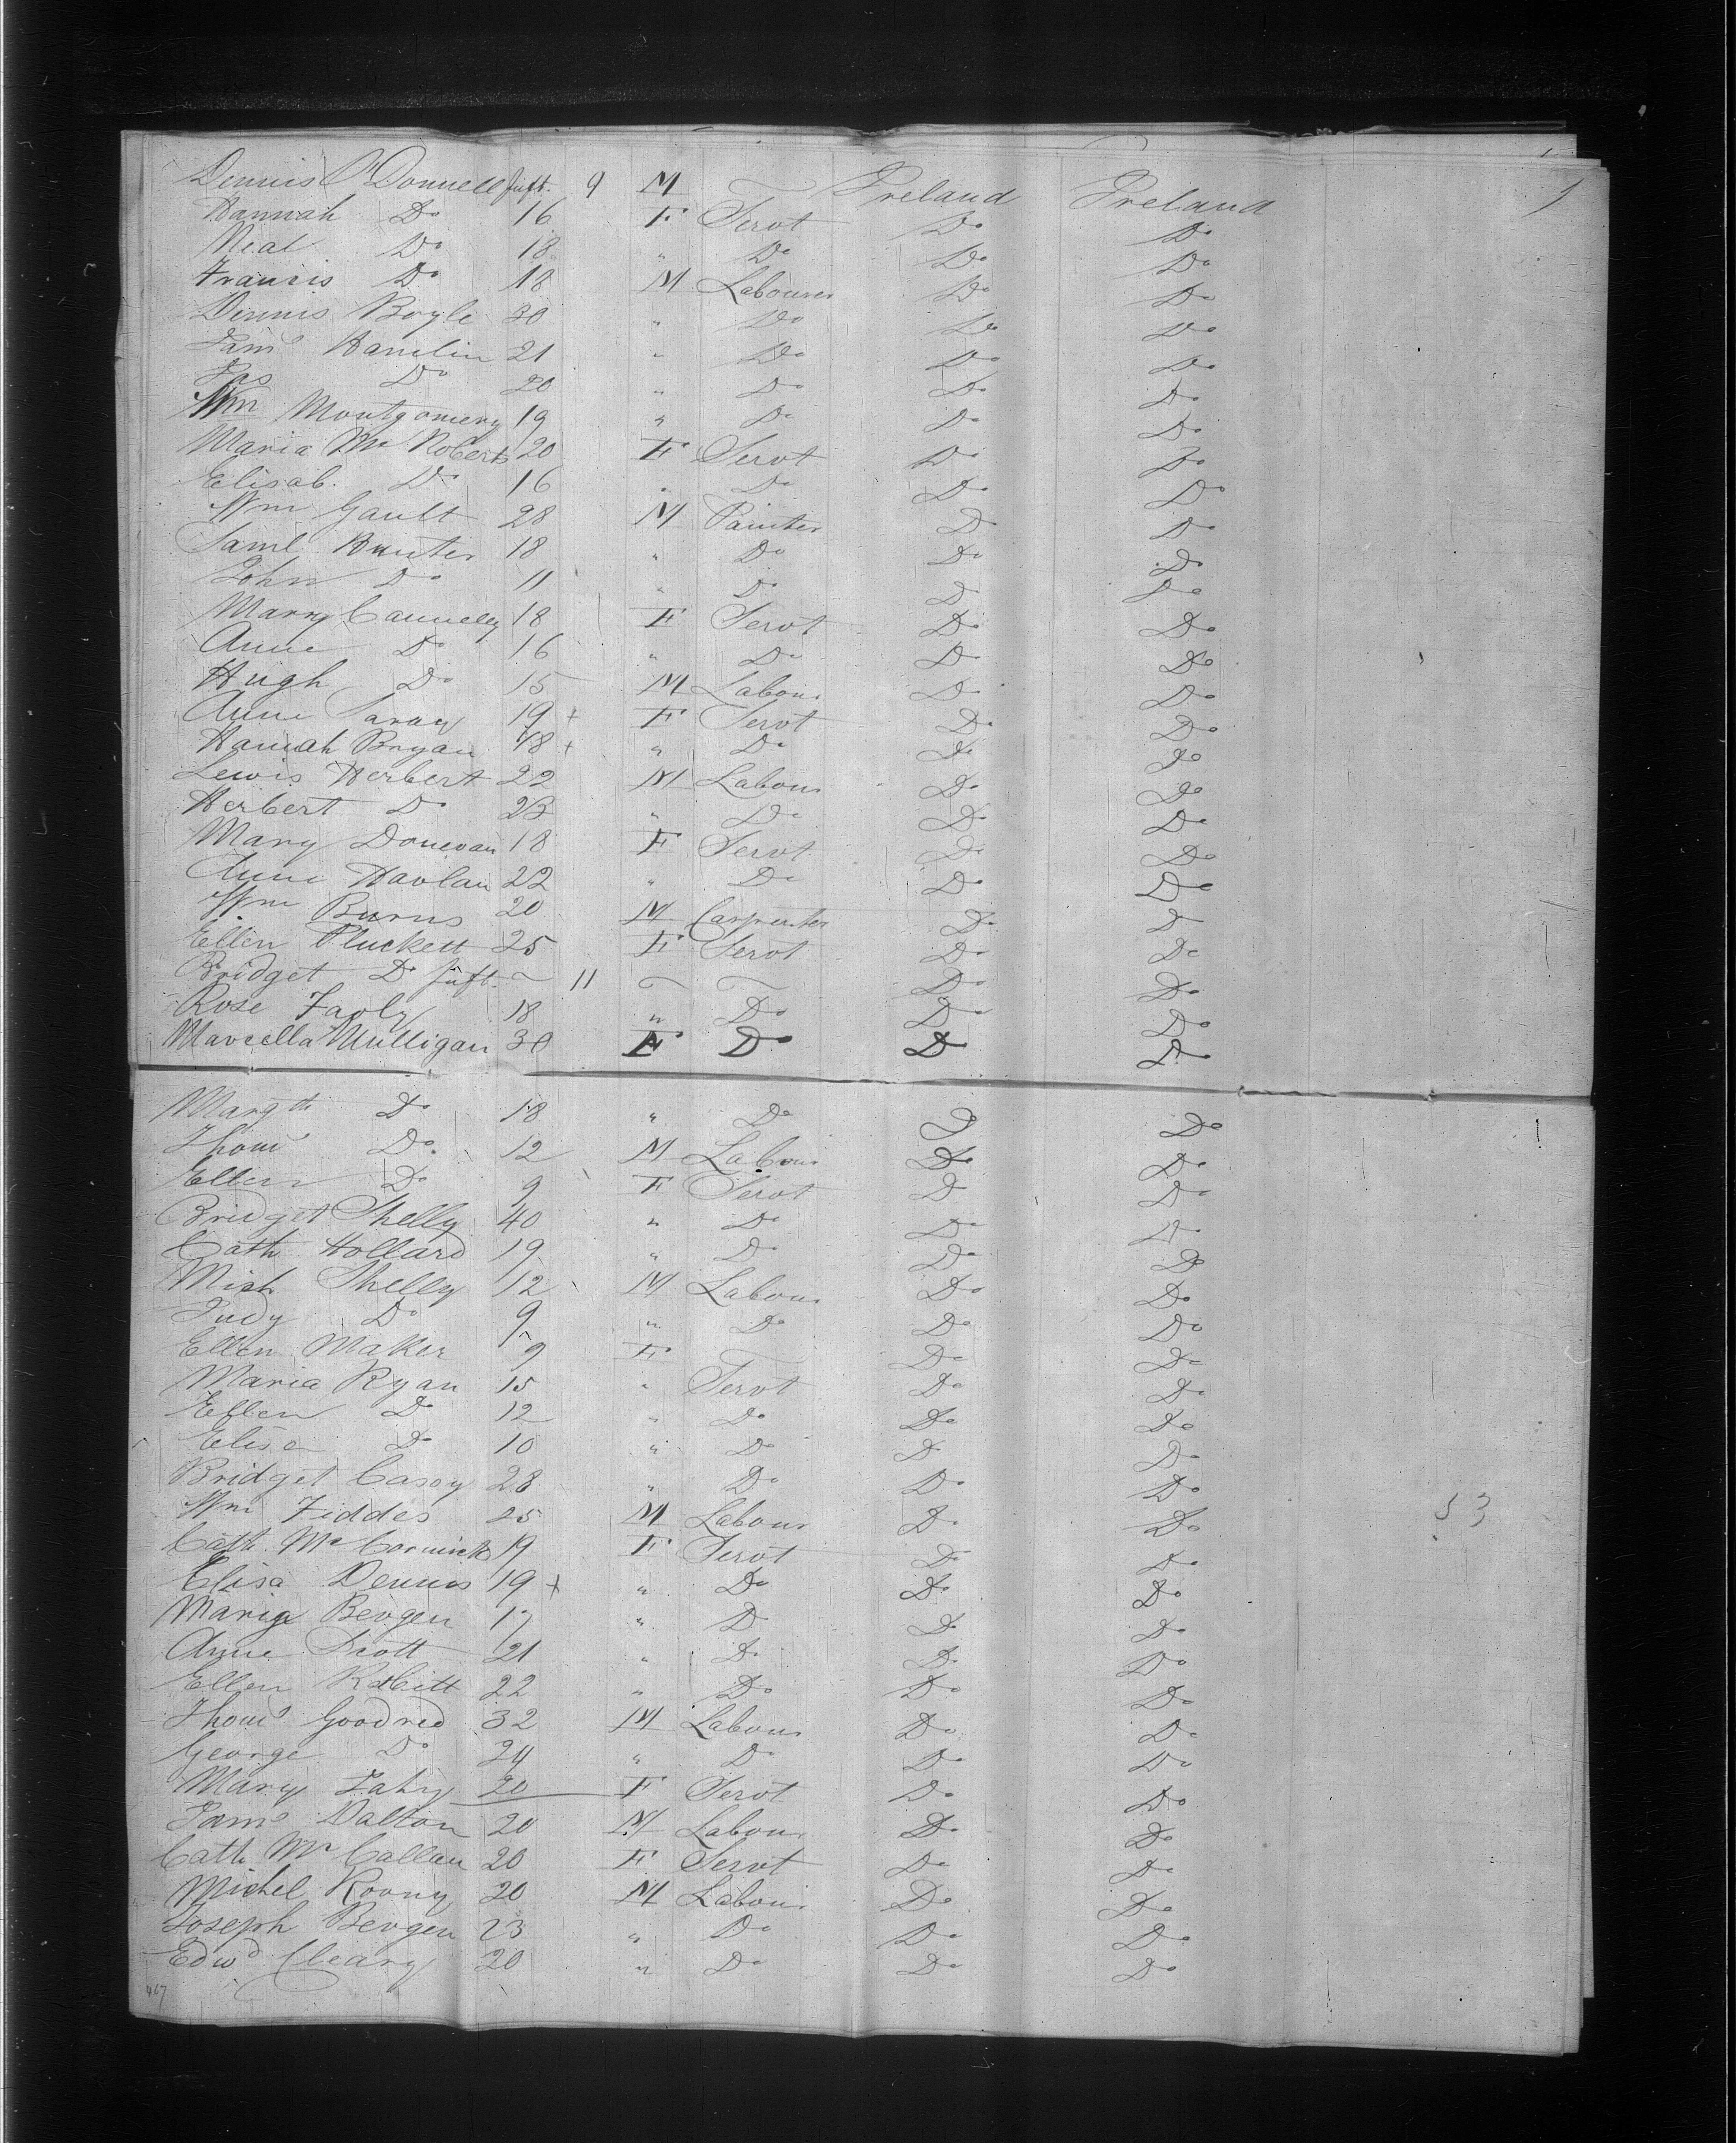 Dennis O'Donnell Inft. 9 M ~ Ireland Ireland 1
Hannah Do 16 F Servt Do Do
Neal Do 18 " Do Do Do
Francis Do 18 M Labourer Do Do
Dennis Boyle 30 " Do Do Do
Jams Hamlin 21 " Do Do Do
Jas Do 20 " Do Do Do
Wm Montgomery 19 " Do Do Do
Maria Mc Roberts 20 F Servt Do Do
Elisab. Do 16 " Do Do Do
Wm Gault 28 M Painter Do Do
Saml Hunter 18 " Do Do Do
John Do 11 " Do Do Do
Marry Cannelly 18 F Servt Do Do
Anne Do 16 " Do Do Do
Hugh Do 15 M Labour Do Do
Anne 19 + F Servt Do Do
Hannah Bryan 18 + " Do Do Do
Lewis Herbert 22 M Labour Do Do
Herbert Do 23 " Do Do Do
Mary Donevan 18 F Servt Do Do
Anne Havlan 22 " Do Do Do
Wm Burns 20 M Carpenter Do Do
Ellen Pluckett 25 F Servt Do Do
Bridget Do Inft. ~ 11 ~ ~ Do Do
Rose Farly 18 " Do Do Do
Marcella Mulligan 30 F Do Do Do
Margth Do 18 " Do Do Do
Thoms Do 12 M Labour Do Do
Ellen Do 9 F Servt Do Do
Bridget Shelly 40 " Do Do Do
Cath Hollard 19 " Do Do Do
Mich Shelly 12 M Labour Do Do
Judy Do 9 " Do Do Do
Ellen Maker 9 F ~ Do Do
Maria Ryan 15 " Servt Do Do
Ellen Do 12 " Do Do Do
Elisa Do 10 " Do Do Do
Bridget Casey 28 " Do Do Do
Wm Fiddes 25 M Labour Do Do
53
Cath. Mc Cormick 19 F Servt Do Do
Elisa Dennis 19 + " Do Do Do
Maria Bergen 17 " Do Do Do
Anne Scott 21 " Do Do Do
Ellen Rabitt 22 " Do Do Do
Thoms Goodred 32 M Labour Do Do
George Do 24 " Do Do Do
Mary Fahy 20 F Servt Do Do
Jams Dalton 20 M Labour Do Do
Cath Mc Callan 20 F Servt Do Do
Michel Roony 20 M Labour Do Do
Joseph Bergen 23 " Do Do Do
Edwd Cleary 20 " Do Do Do
467